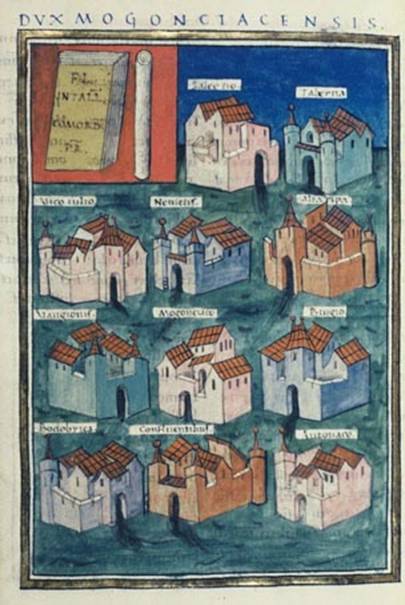 DVX MOGONCIACENSIS.
FL
INTALL
COMORD
PR
Saletio.
Taberna.
Vico iulio.
Nemetis.
Alta ripa
Vangionis.
Mogonciaco
Bingio
Bodobrica.
Confluentibus.
Antonaco.